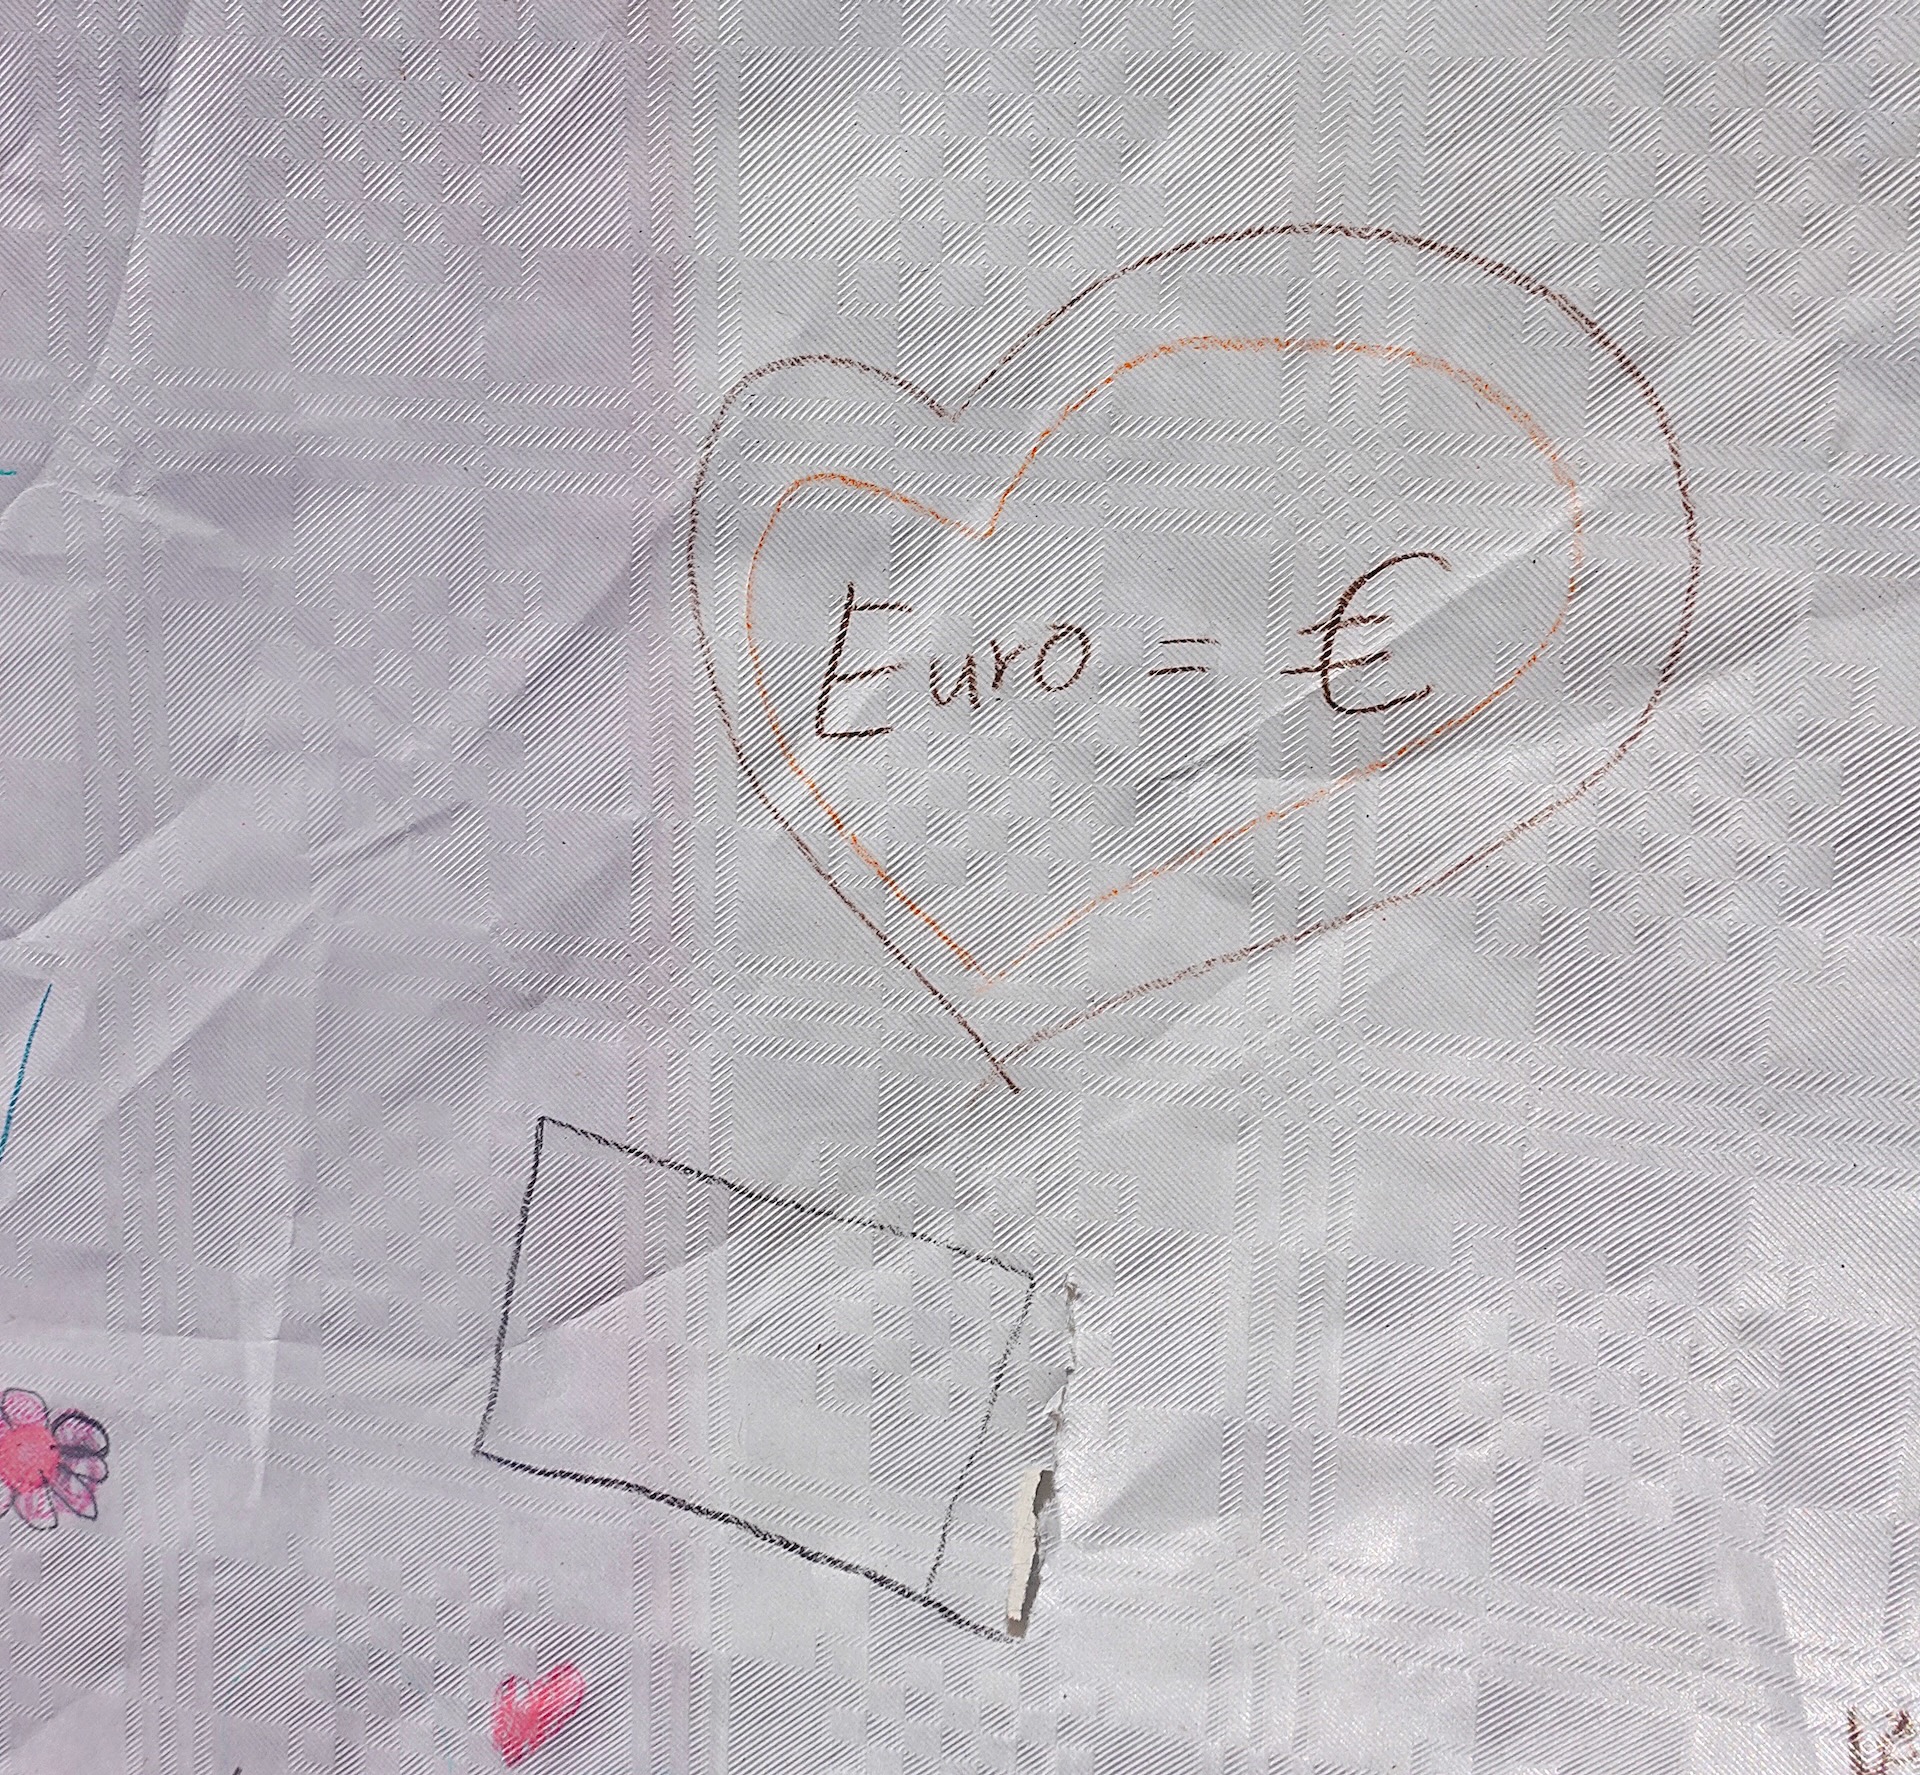 Euro = €